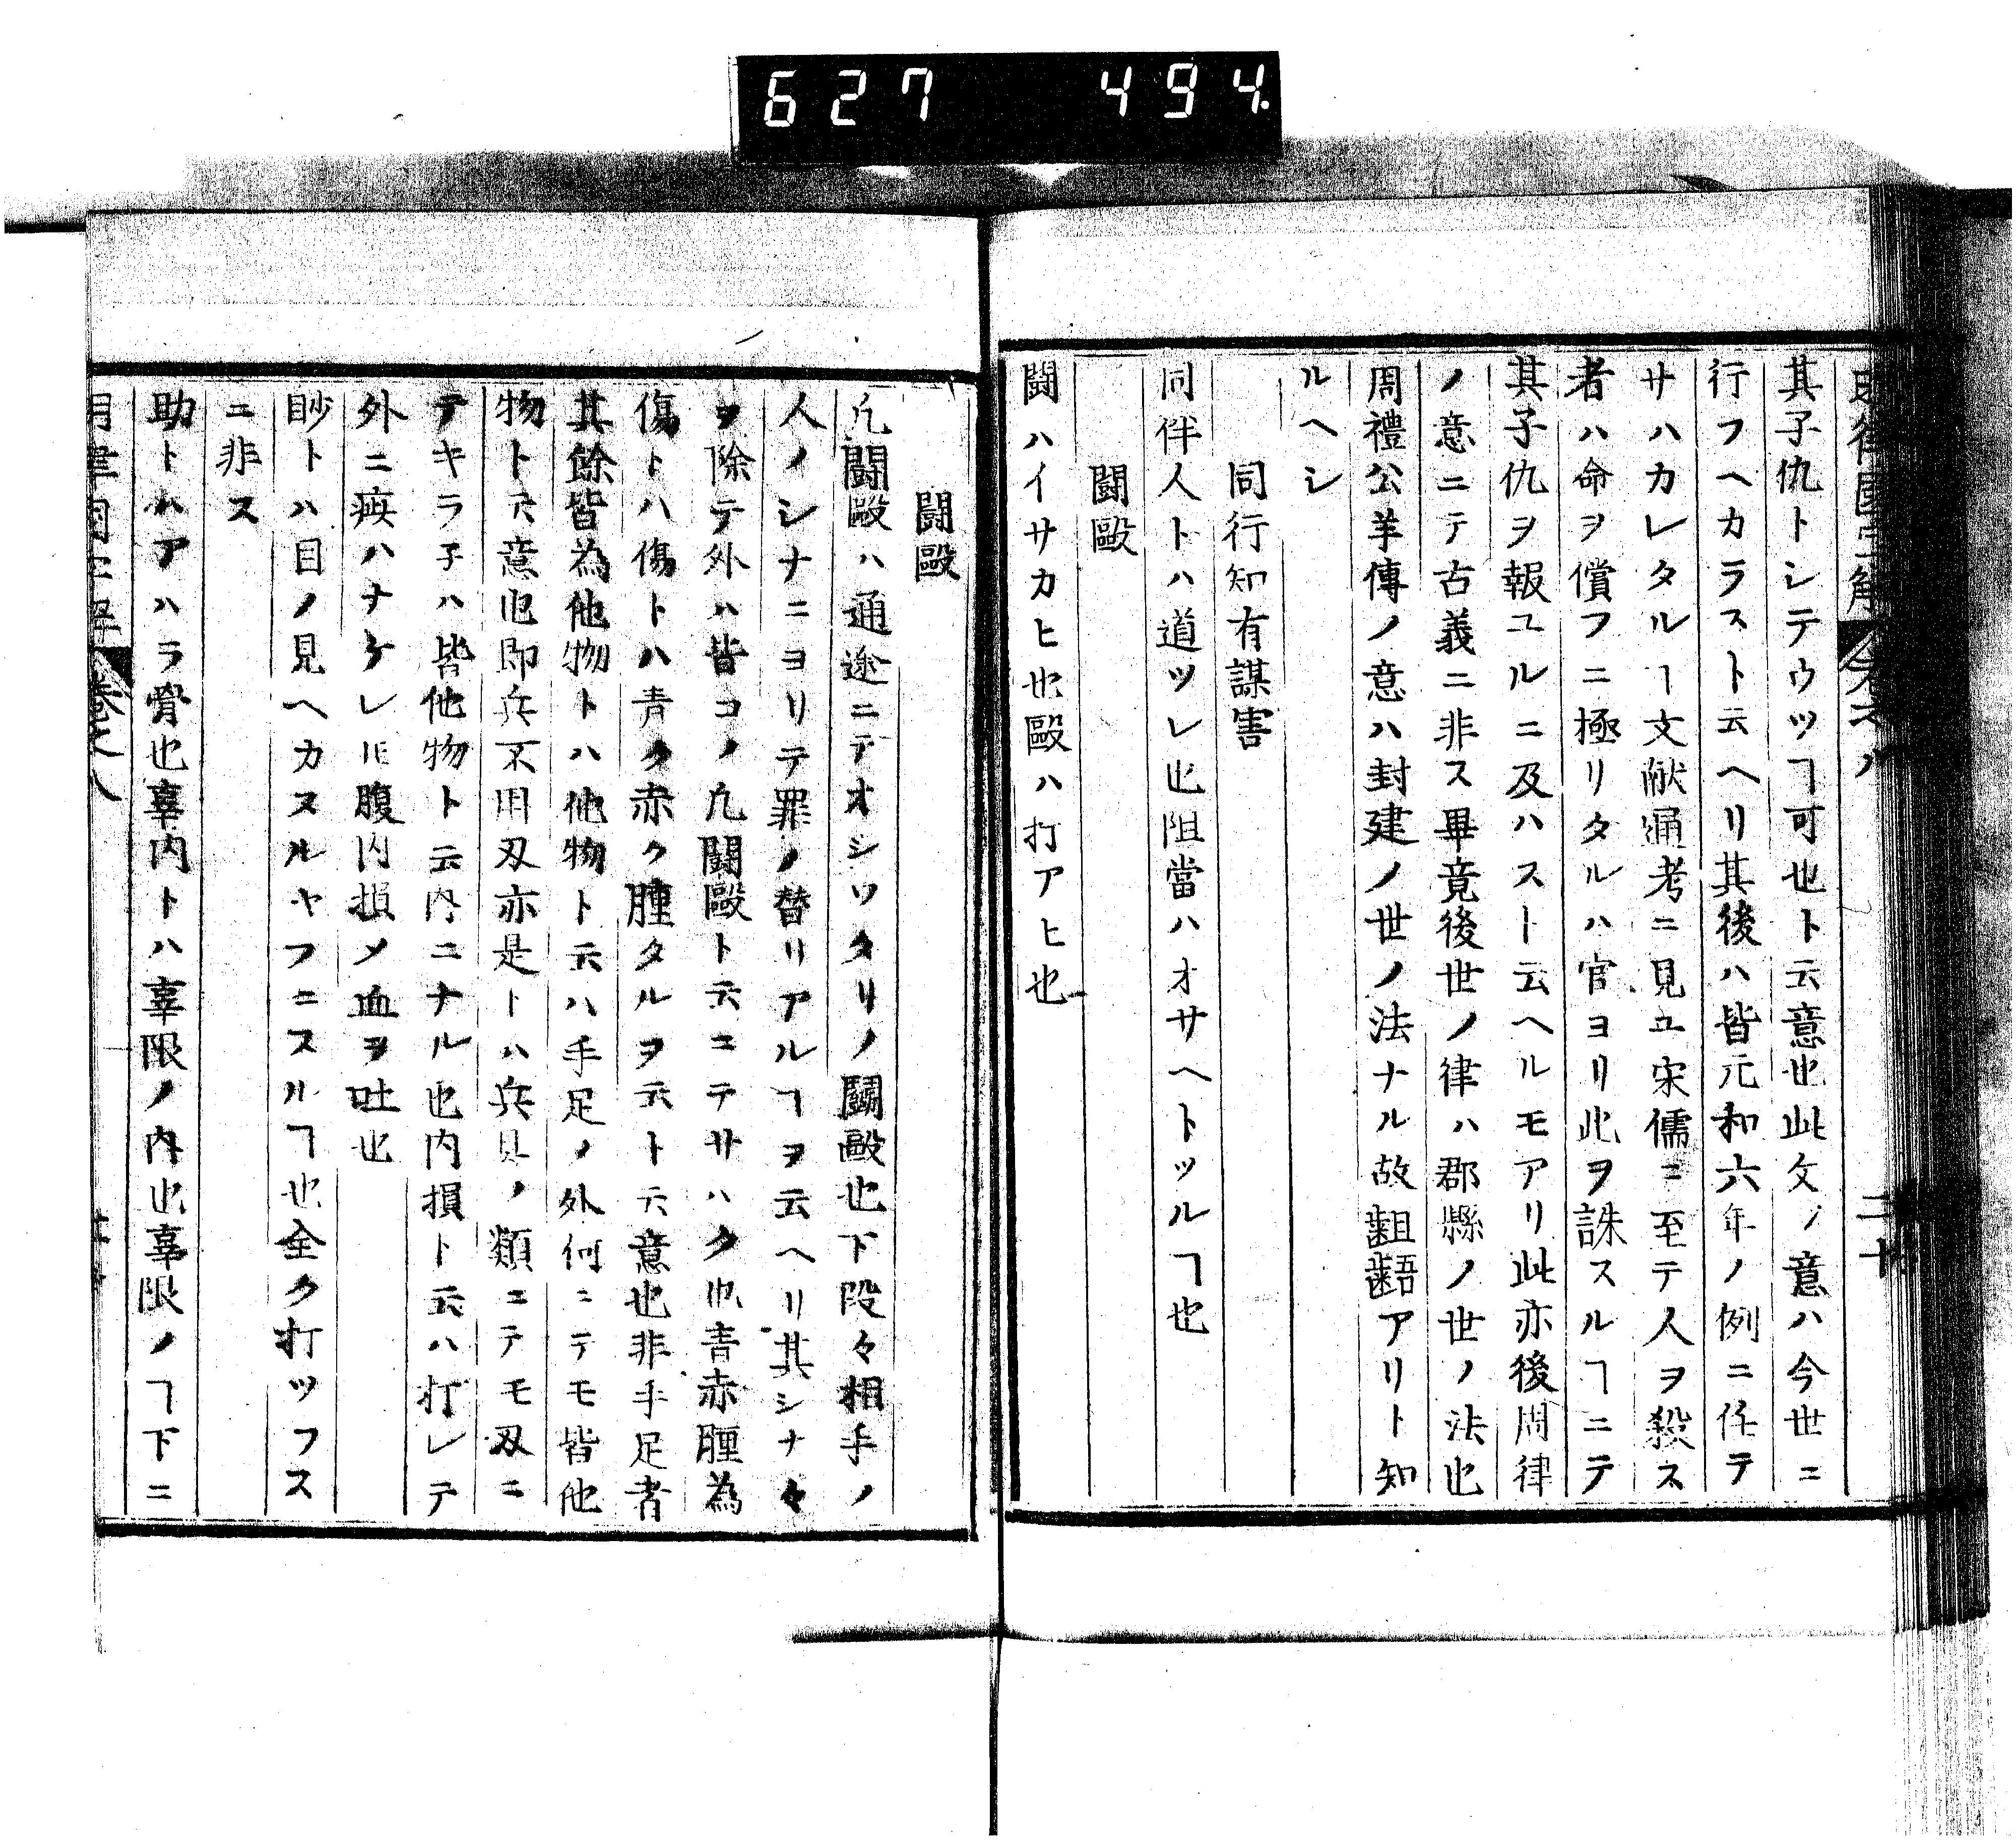 627 494
其子仇トシテウツヿ可也ト云意也此文ノ意ハ今世ニ
行フヘカラスト云ヘリ其後ハ皆元和六年ノ例ニ任テ
サハカレタルヿ文献通考ニ見ユ宋儒ニ至テ人ヲ殺ス
者ハ命ヲ償フニ極リタルハ官ヨリ此ヲ誅スルヿニテ
其子仇ヲ報ユルニ及ハスト云ヘルモアリ此亦後周律
ノ意ニテ古義ニ非ス畢竟後世ノ律ハ郡縣ノ世ノ法也
周禮公羊傳ノ意ハ封建ノ世ノ法ナル故齟齬アリト知
ルヘシ
同行知有謀害
同伴人トハ道ツレ也阻當ハオサヘトツルヿ也
鬪毆
鬪ハイサカヒ也毆ハ打アヒ也
鬪毆
凡鬪毆ハ通途ニテオシワタリノ鬪毆也下段々相手ノ
人ノシナニヨリテ罪ノ替リアルヿヲ云ヘリ其シナ々
ヲ除テ外ハ皆コノ凡鬪毆ト云ニテサハク也青赤腫為
傷トハ傷トハ青ク赤ク腫タルヲ云ト云意也非手足者
其餘皆為他物トハ他物ト云ハ手足ノ外何ニテモ皆他
物ト云意也即兵不用刃亦是トハ兵具ノ類ニテモ刃ニ
テキラ子ハ皆他物ト云内ニナル也内損ト云ハ打レテ
外ニ痍ハナケレ𪜈腹内損メ血ヲ吐也
眇トハ目ノ見ヘカスルヤフニスルヿ也全ク打ツフス
ニ非ス
助トハアハラ骨也辜内トハ辜限ノ内也辜限ノヿ下ニ